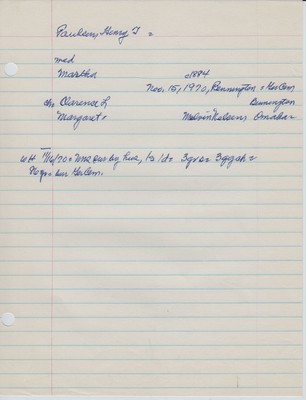 Paulsen, Henry T =
md
Martha c1884
Nov. 15, 1970, Bennington = Her Cem
ch: Clarence L Bennington
Margaret = Melvin Nelsens Omaha=
WH 11/16/70 = was sur by hus, 1s 1d= 3gr = 3ggch =
86 yr = bur Her Cem.